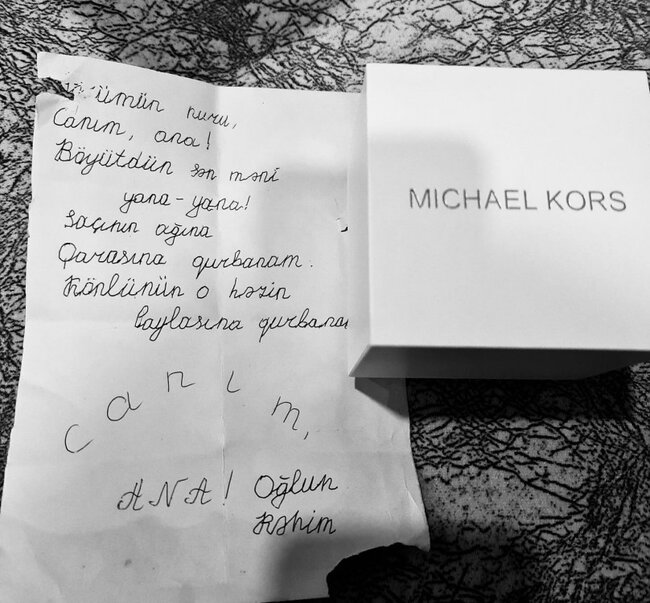 ümün nuru,
Canım, ana!
Böyütdün sən məni
yana-yana!
Saçının ağına
Qarasına qurbanam.
Könlünün o həzin
laylasına qurbanam
Canım,
ANA! Oğlun
Rəhim
MICHAEL KORS